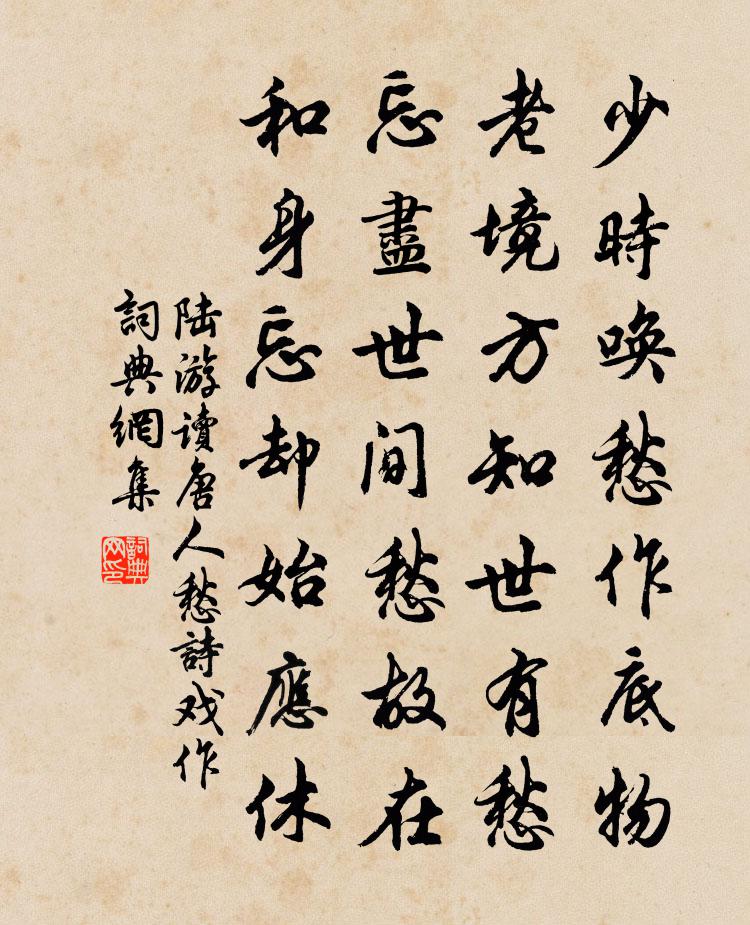 少時喚愁作底物
老境方知世有愁
忘盡世間愁故在
和身忘却始應休
陆游讀唐人愁詩戏作
詞典網集
詞典网印